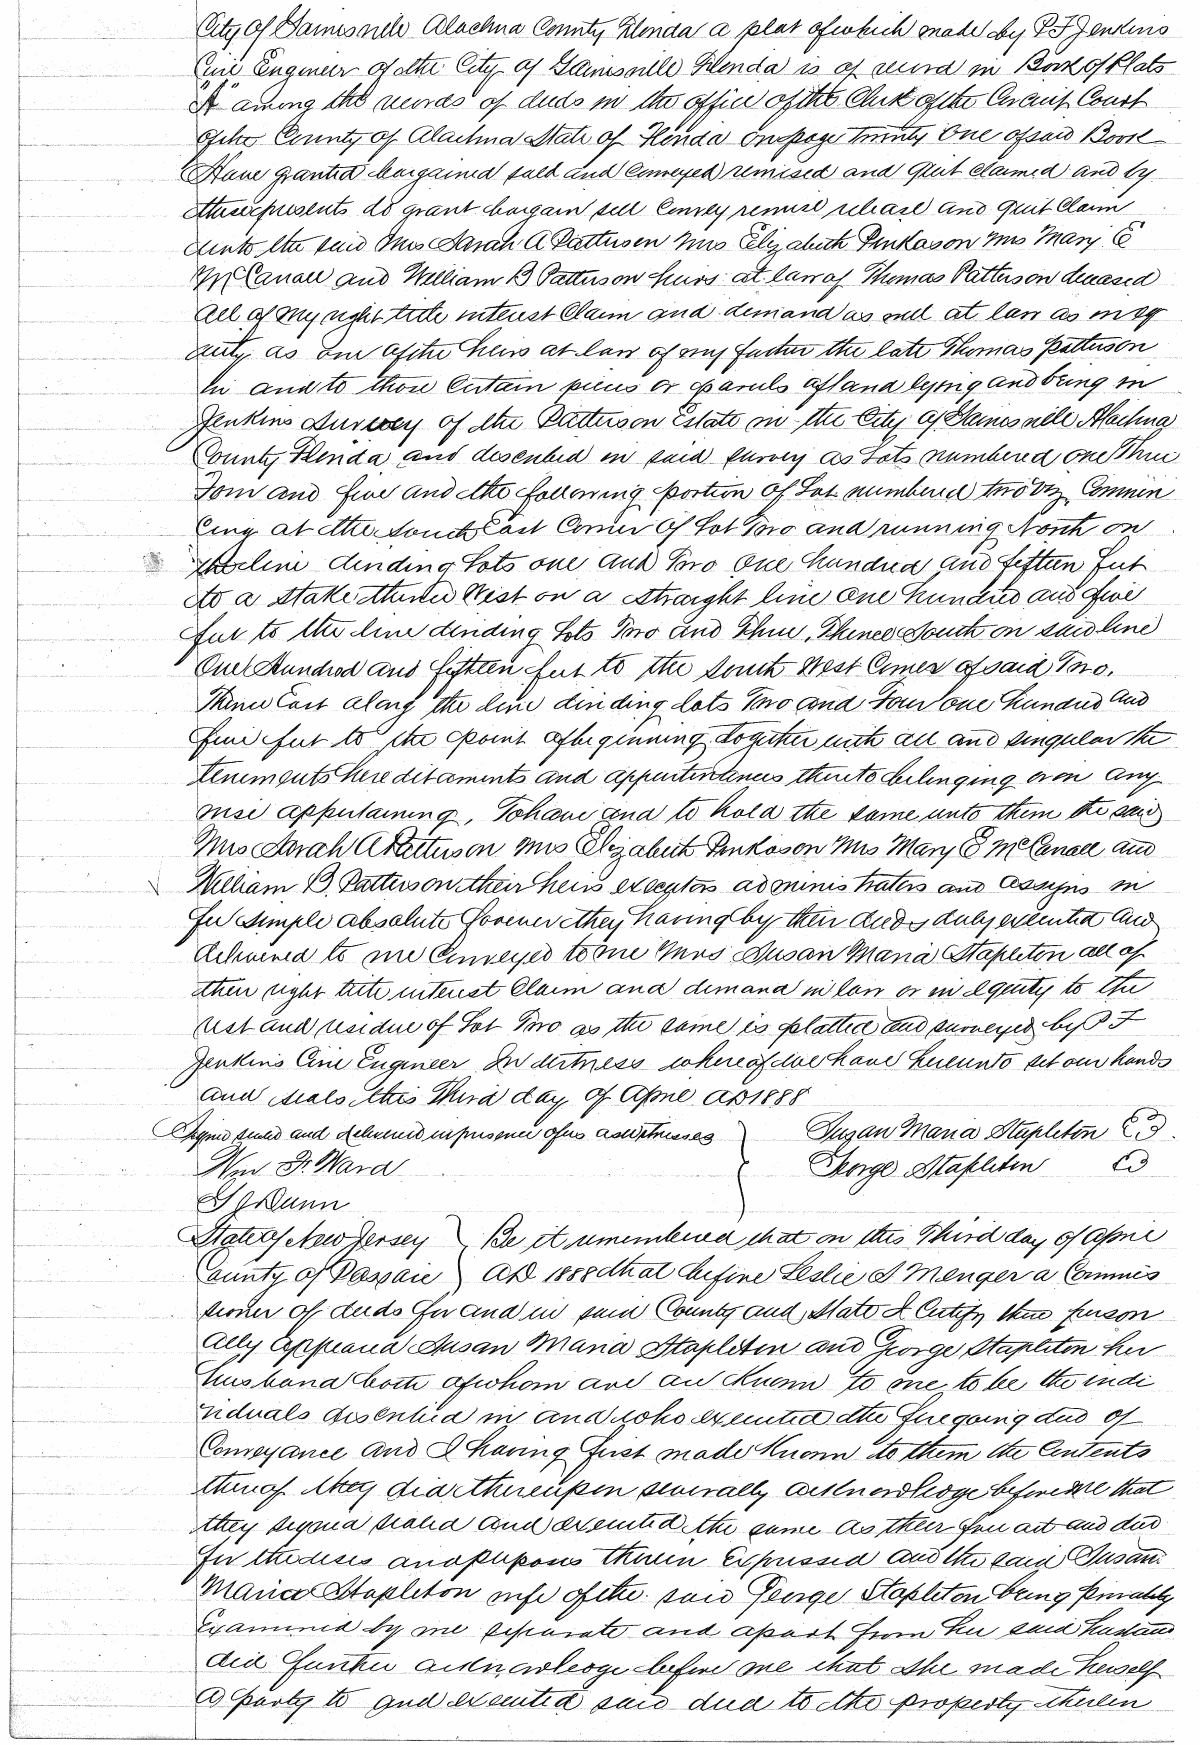 City of Gainesville Alachua County Florida a plat of which made by P F Jenkins
Civil Engineer of the City of Gainesville Florida is of record in Book of Plats
"A" among the records of deeds in the office of the Clerk of the Circuit Court
of the County of Alachua State of Florida on page twenty one of said Book
Have granted bargained sold and conveyed remised and quit claimed and by
these presents do grant bargain sell convey remise release and quit claim
unto the said Mrs Sarah A Patterson Mrs Elizabeth Pinkoson Mrs Mary E
McCanall and William B Patterson heirs at law of Thomas Patterson deceased
all of my right title interest claim and demand as well at law as in eq
uity as one of the heirs at law of my father the late Thomas Patterson
in and to those certain pieces or parcels of land lying and being in
Jenkins Survey of the Patterson Estate in the City of Gainesville Alachua
County Florida and described in said survey as Lots numbered one Three
Four and five and the following portion of Lot numbered two viz Commen
cing at the South East Corner of Lot Two and running North on
the line dividing Lots one and Two One hundred and fifteen feet
to a stake thence West on a straight line one hundred and five
feet to the line dividing Lots Two and Three, Thence South on said line
One Hundred and fifteen feet to the South West Corner of said Two.
Thence East along the line dividing lots Two and Four one hundred and
five feet to the point of beginning, Together with all and singular the
tenements hereditaments and appurtenances thereto belonging or in any
wise appertaining, To have and to hold the same unto them the said
Mrs Sarah A Patterson Mrs Elizabeth Pinkoson Mrs Mary E McCanall and
William B. Patterson their heirs executors administrators and assigns in
fee simple absolute forever they having by their deeds duly executed and
delivered to me conveyed to me Mrs Susan Maria Stapleton all of
their right title interest claim and demand in law or in equity to the
rest and residue of Lot Two as the same is platted and surveyed by P F
Jenkins Civil Engineer In witness whereof we have hereunto set our hands
and seals this Third day of April AD 1888
Signed sealed and delivered in presence of us as witnesses Susan Maria Stapleton
Wm F. Ward George Stapleton
State of New Jersey Be it remembered that on this Third day of April
County of Passaic AD 1888 that before Leslie S Menger a Commis
sioner of deeds for and in said County and State I Certify there person
ally appeared Susan Maria Stapleton and George Stapleton her
husband both of whom are well Known to me to be the indi
viduals described in and who executed the foregoing deed of
Conveyance and I having first made Known to them the Contents
thereof they did thereupon severally acknowledge before me that
they signed sealed and executed the same as their free act and deed
for the uses and purposes therein Expressed and the said Susan
Maria Stapleton wife of the said George Stapleton being privately
Examined by me separate and apart from her said husband
did further acknowledge before me that she made herself
a party to and executed said deed to the property therein